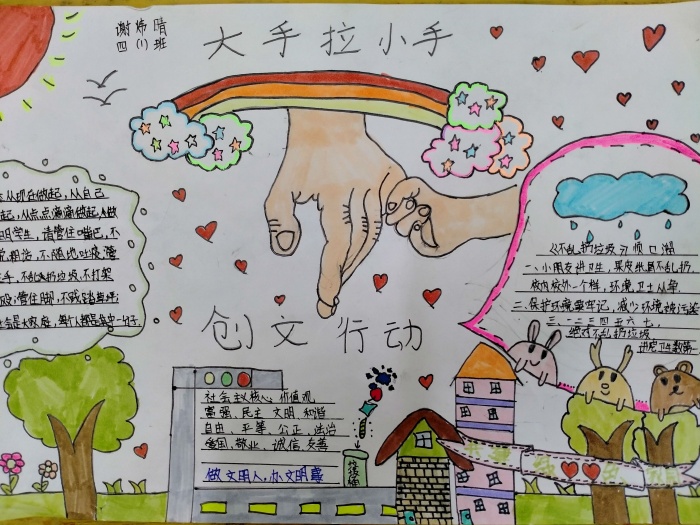 谢炜晴
四(1)班
大手拉小手
从现在做起,从自己
起,从点点滴滴做起,做
明学生,请管住嘴巴,不
说粗话,不随地吐痰,管
手,不乱扔垃圾,不打架
管住脚,不践踏草坪
会是大家庭,每个人都是其中一份子
《不乱扔垃圾》顺口溜
一、小朋友讲卫生,果皮纸屑不乱扔
校内校外一个样,环境卫士从军
二、保护环境要牢记,减少环境被污染
三、一二三四五六七,
绝对不乱扔垃圾
创文行动
社会主义核心价值观
富强、民主 文明 和谐
自由、平等、公正、法治
爱国、敬业、诚信、友善
做文明人,办文明事
垃圾桶